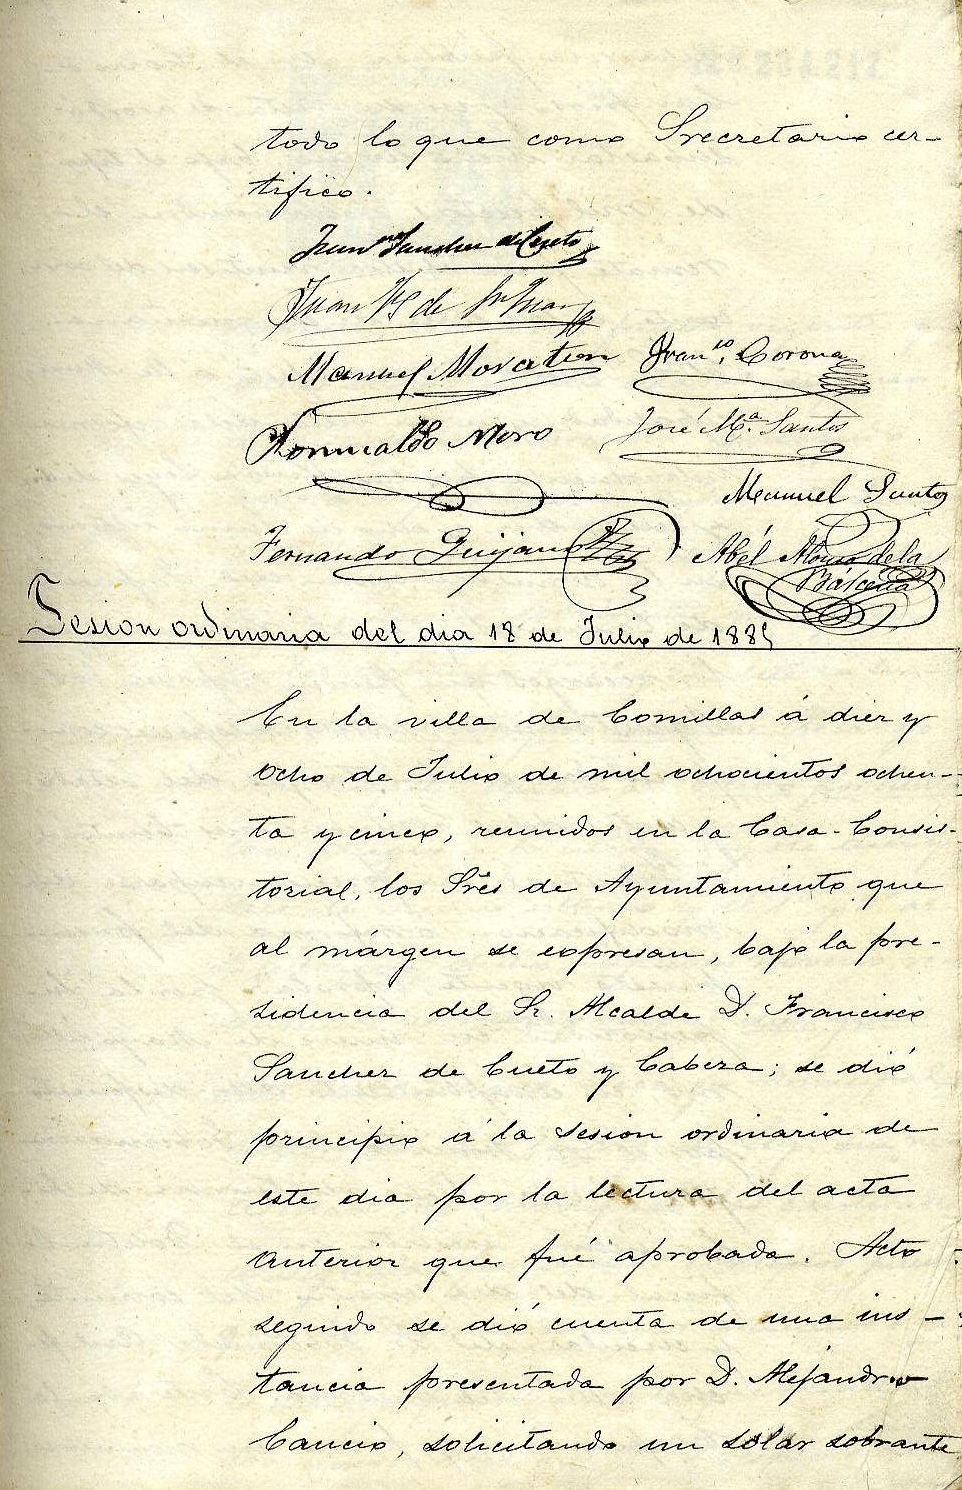 todo lo que como Srecretario cer-
tifico.
Fran.co Sanchez de Cueto
Juan
Manuel Moratien Fran.co Corona
Romualdo Moro José M.ª Santos
Manuel Santos
Fernando Quijano
Abél Alonso de la
Bárcena
Sesion ordinaria del dia 18 de Julio de 1885
En la villa de Comillas á diez y
ocho de Julio de mil ochocientos ochen-
ta y cinco, reunidos en la Casa-Consis-
torial, los Srẽs de Ayuntamiento que
al márgen se expresan, bajo la pre-
sidencia del Sr. Alcalde D. Francisco
Sanchez de Cueto y Cabeza; se dió
principio á la sesion ordinaria de
este dia por la lectura del acta
anterior que fué aprobada. Acto
seguido se dió cuenta de una ins-
tancia presentada por D. Alejandro
Cancio, solicitando un solar sobrante